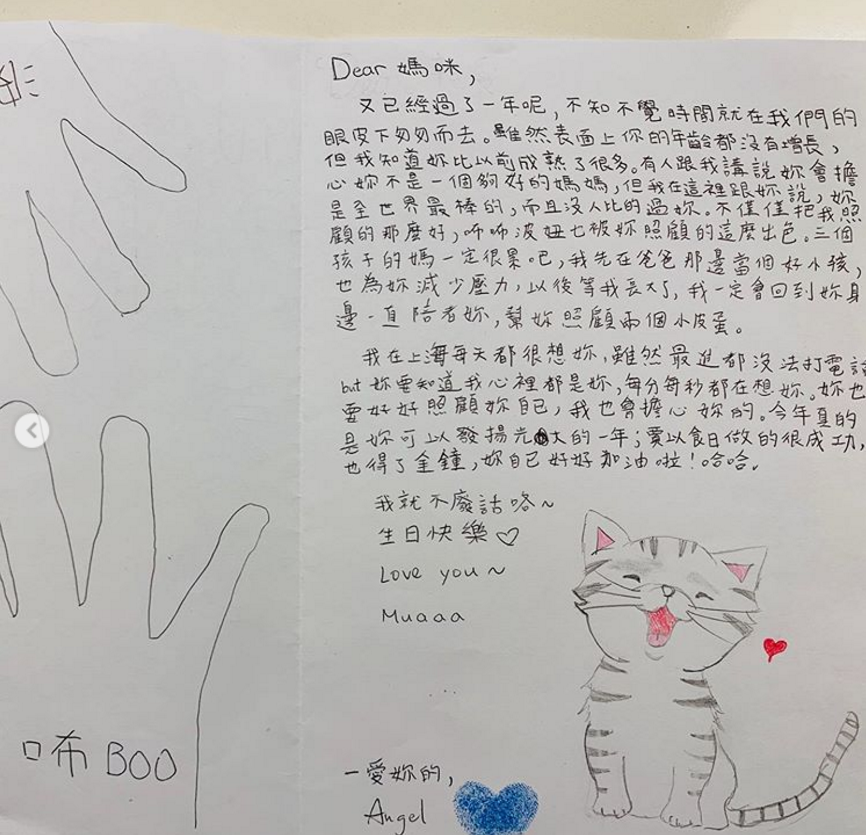 Dear 媽咪,
又已經過了一年呢, 不知不覺時間就在我們的
眼皮下匆匆而去。雖然表面上你的年齡都沒有增長,
但我知道妳比以前成熟了很多。有人跟我講說妳會擔
心妳不是一個夠好的媽媽, 但我在這裡跟妳說, 妳
是全世界最棒的, 而且沒人比的過妳。不僅僅把我照
顧的那麼好, 咘咘波妞也被妳照顧的這麼出色。三個
孩子的媽一定很累吧, 我先在爸爸那邊當個好小孩,
也為妳減少壓力, 以後等我長大了, 我一定會回到妳身
邊一直陪者妳, 幫妳照顧兩個小皮蛋。
我在上海每天都很想妳, 雖然最進都沒法打電話
but 妳要知道我心裡都是妳, 每分每秒都在想妳。妳也
要好好照顧妳自己, 我也會擔心妳的。今年真的
是妳可以發揚光大的一年; 賈以食日做的很成功,
也得了金鐘, 妳自己好好加油啦! 哈哈.
我就不廢話咯~
生日快樂♡
Love you~
Muaaa
咘 BOO
—愛妳的,
Angel